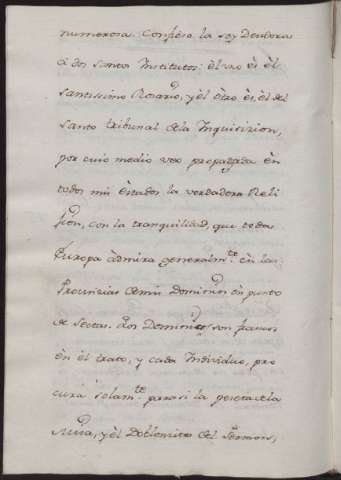 numerosa. Confieso la soy Deudora
à dos santos Institutos: èl uno ès èl
santissimo Rosario, y èl òtro ès èl del
santo tribunal de la Inquisizion,
por cuio medio veo propagada èn
todos mis èstados la verdadera Reli
gion, con la tranquilidad, que toda
Europa àdmira generalm.te èn las
Provinzias de mis Dominios èn punto
de sectas. Los Dominicos son francos
èn èl trato, y cada Individuo, pro
cura solam.te para si la peseta de la
Missa, y èl del Sermon,